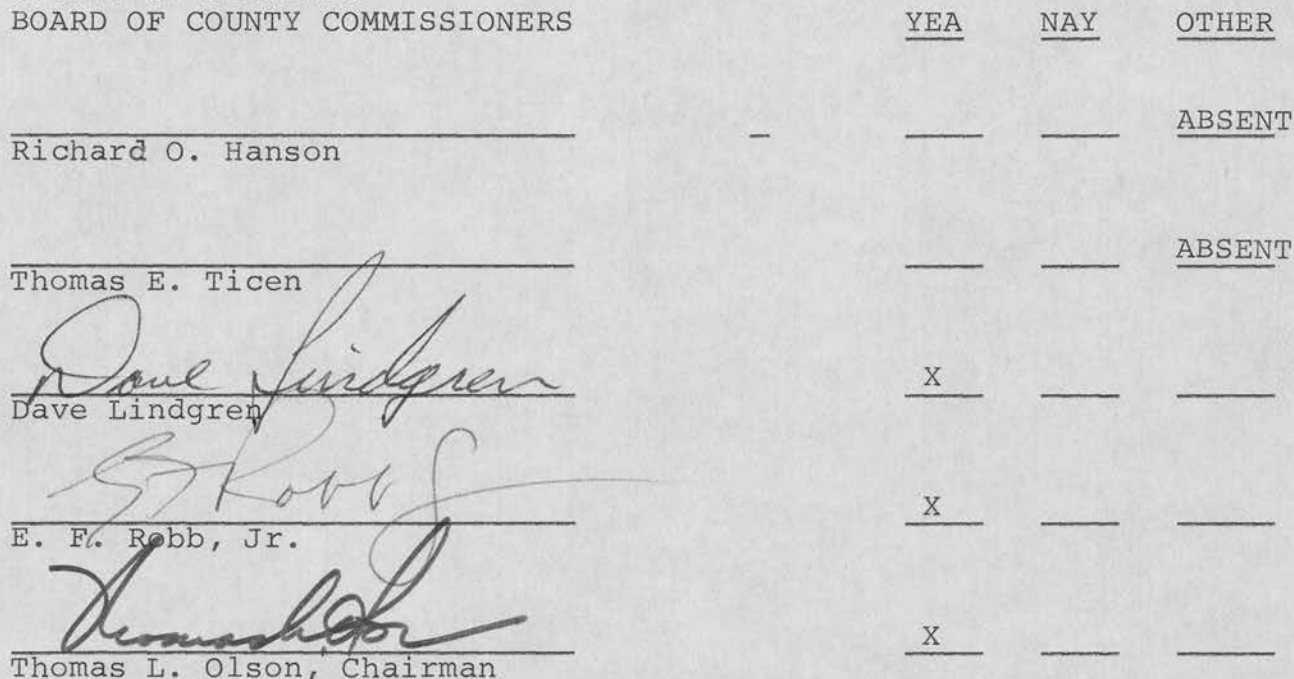 BOARD OF COUNTY COMMISSIONERS YEA NAY OTHER
ABSENT
Richard O. Hanson
ABSENT
Thomas E. Ticen
Dave Lindgren X
Dave Lindgren
E F Robb Jr X
E. F. Robb, Jr.
Thomas L Olson X
Thomas L. Olson, Chairman